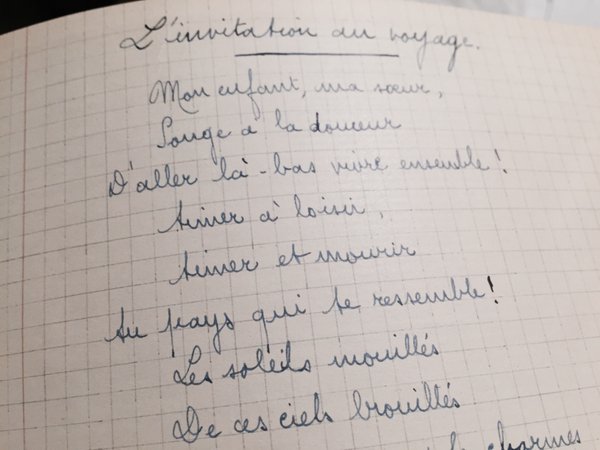 L'invitation au voyage.
Mon enfant, ma sœur,
Songe a la douceur
D'aller là-bas vivre ensemble!
Aimer à loisir,
Aimer et mourir
Au pays qui te ressemble!
Les soleils mouillés
De ces ciels brouillés
charmes